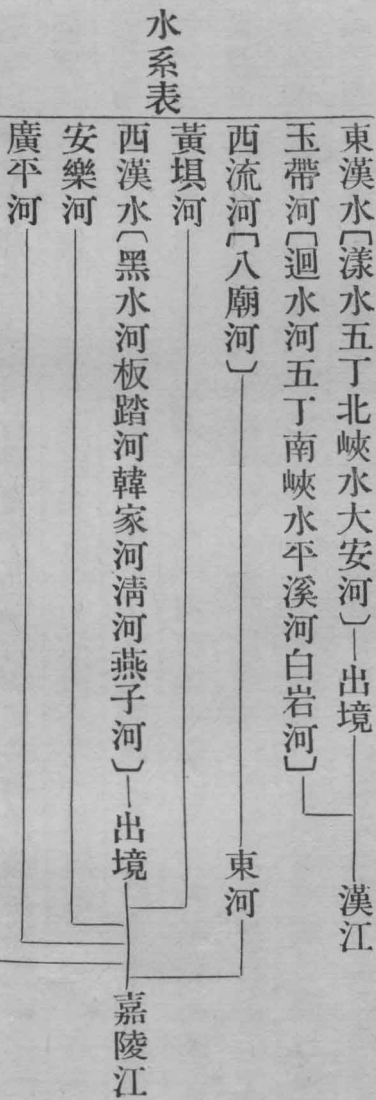 水系表
東漢水〔漾水五丁北峽水大安河〕出境 漢江
玉帶河〔迴水河五丁南峽水平溪河白岩河〕
西流河〔八廟河〕 東河
黃垻河
西漢水〔黑水河板踏河韓家河淸河燕子河〕出境 嘉陵江
安樂河
廣平河